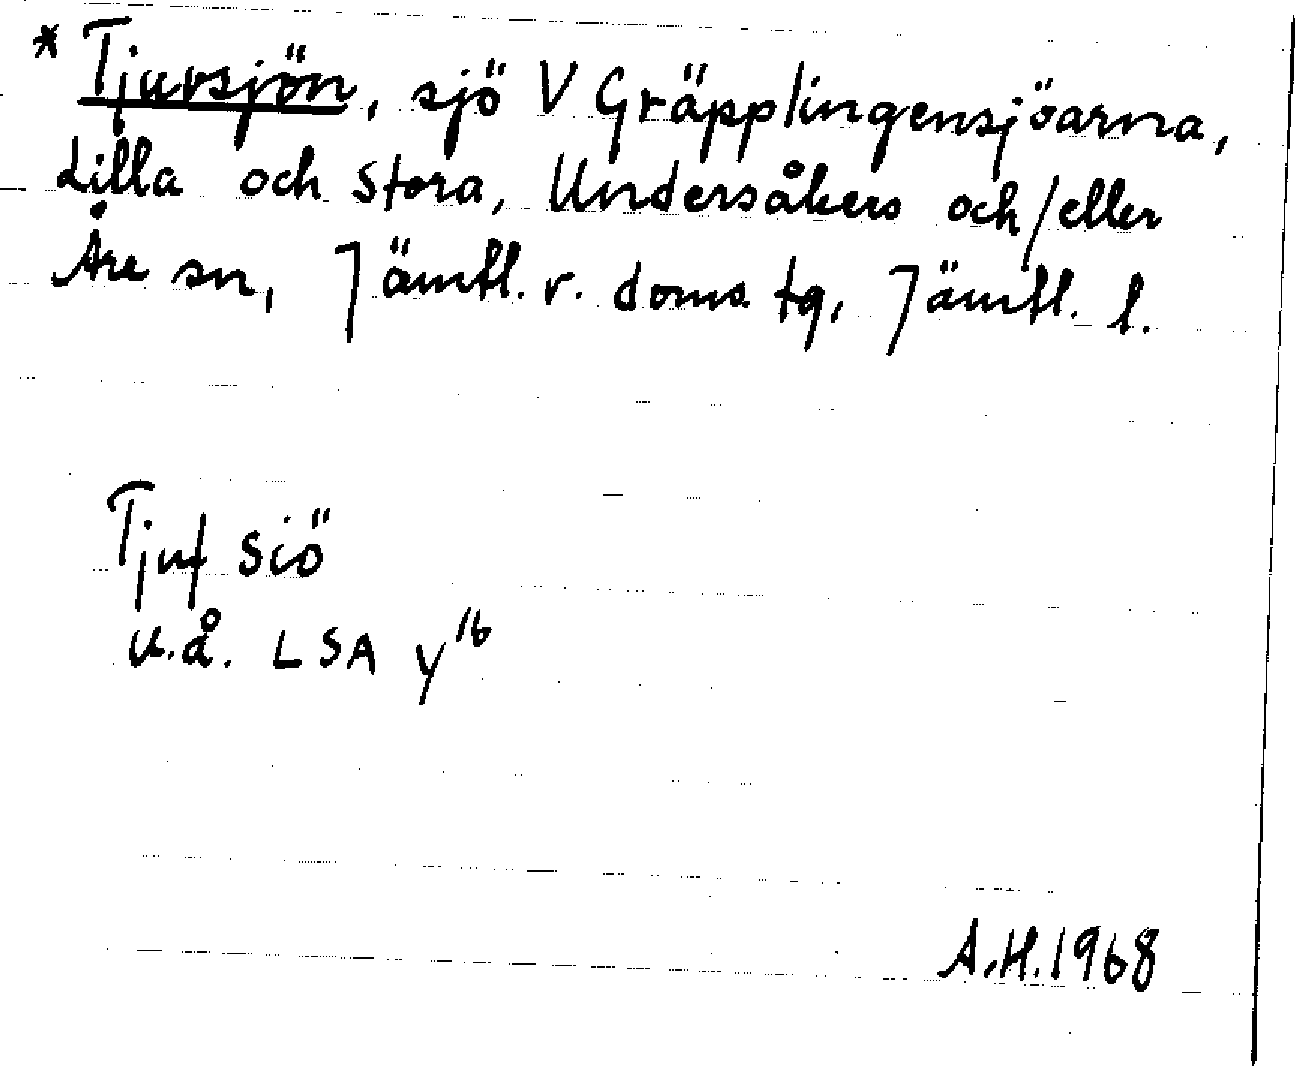 * Tjuvsjön, sjö V Gräpplingensjöarna,
Lilla och Stora, Undersåkers och/eller
Åre sn, Jämtl. v. doms tg, Jämtl. l.
Tjuf Siö
u.å. LSA Y16
A.H. 1968